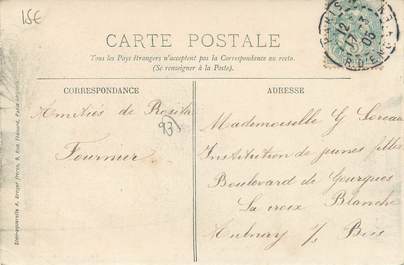 15E
CARTE POSTALE
Tous les Pays étrangers n'acceptent pas la Correspondance au recto.
(Se renseigner à la Poste).
PARIS
12
17 - 3
05
R. D'ENGHIEN
CORRESPONDANCE
ADRESSE
Amitiés de Rosita
Fournier
93)
Mademoiselle G Loreau
Institution de jeunes filles
Boulevard de Gourgues
La croix Blanche
Aulnay s/s Bois